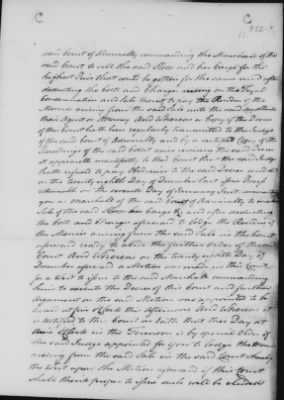 C C
said Court of Admiralty commanding the Marshall of the
said Court to sell the said Sloop and her Cargo for the
highest Price that could be gotten for the same and after
deducting the Costs and Charges arising on the Tryal
Condemnation and Sale thereof to pay the Residue of the
Monies arising from the said Sale unto the said
their Agent or Attorney And Whereas a Copy of the Decree
of this Court hath been regularly transmitted to the Judge
of the said Court of Admiralty and by a certified Copy of the
Proceedings of the said Court since receiving the said Decree
it appeareth manifestly to this Court that the said Judge
hath refused to pay Obedience to the said Decree and did
on the Twenty eighth Day of December last
on the seventh Day of January Inst. command
a Marshall of the said Court of Admiralty to make
Sale of the said Sloop her Cargo &c and after deducting
the Costs and Charges aforesaid to lodge the Residue of
the Monies arising from the said Sale in the said Court
aforesaid ready to abide the further Order of that
Court And Whereas on the twenty eighth Day of
December aforesaid a Motion was made in this Court
for a Writ to issue to the said Marshall commanding
him to execute the Decree of this Court and further
Argument on the said Motion was appointed to be
heard at five o'Clock this Afternoon And Whereas it
is certified to this Court on Oath that this Day at
nine o'Clock in the Forenoon is by special Order of
the said Judge appointed for you to lodge the Monies
arising from the said Sale in the said Court whereby
the Writ upon the Motion aforesaid if this Court
shall think proper to issue such will be eluded